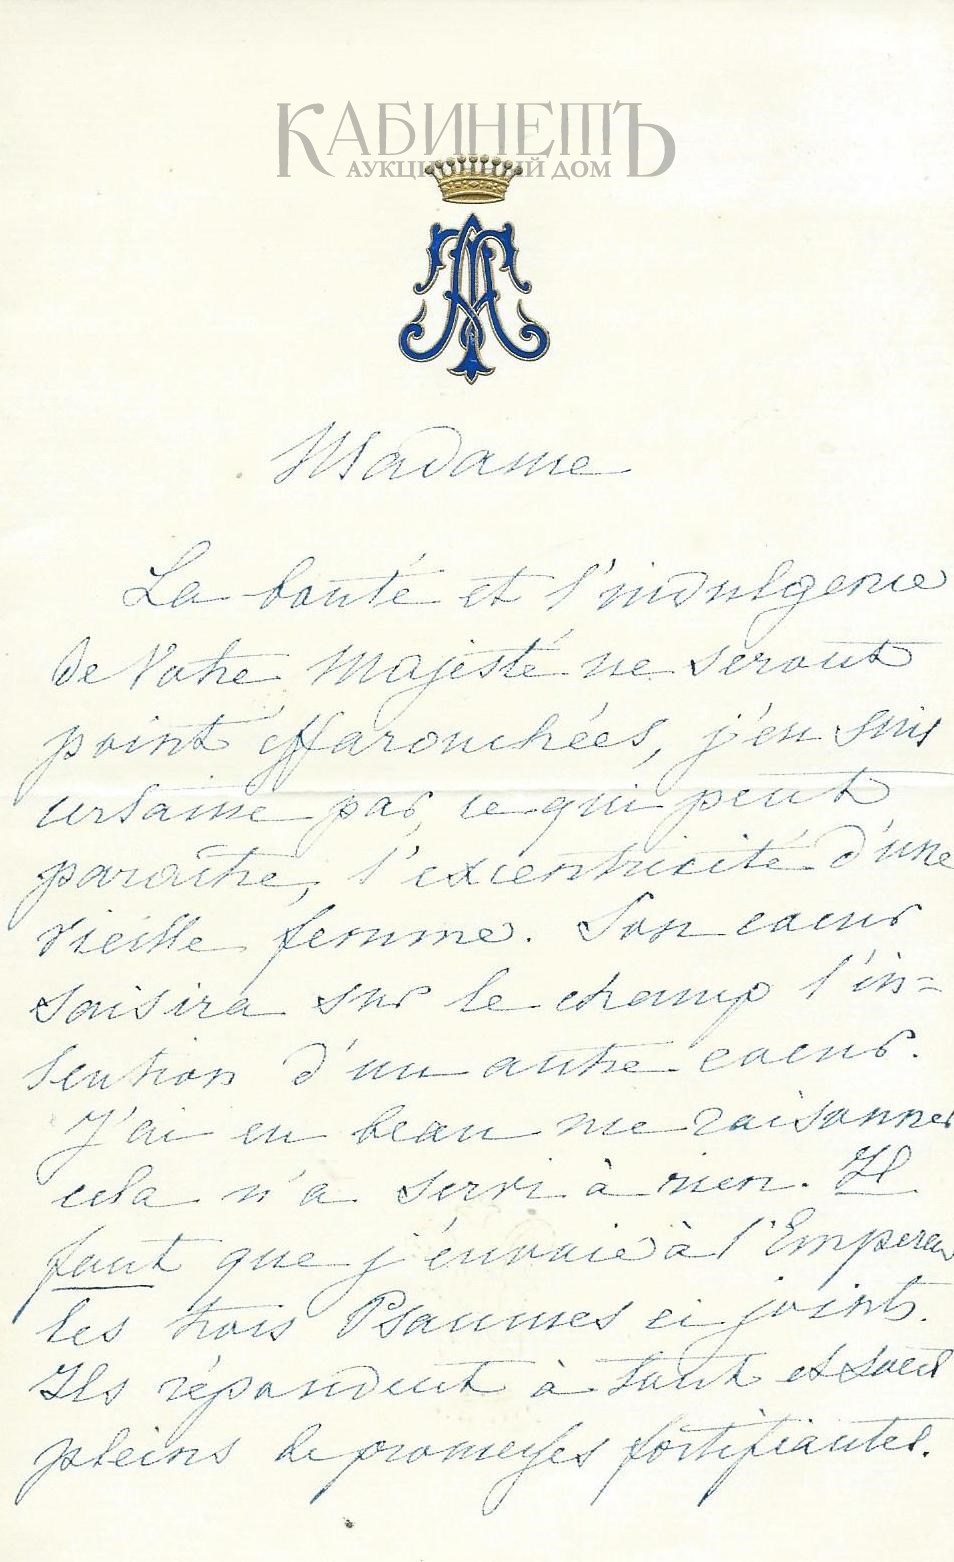 КАБИНЕТЪ
АУКЦИОННЫЙ ДОМ
Madame
La bonté et l'indulgence
de Votre Majesté ne seront
point effarouchées, j'en suis
certaine par ce qui peut
paraître, l'excentricité d'une
vieille femme. Son coeur
saisira sur le champ l'in=
tention d'un autre coeur.
J'ai eu beau me raisonner
cela n'a servi à rien. Il
faut que j'envoie à l'Empereur
les trois Psaumes ci joints.
Ils répondent à tout et sont
pleins de promesses fortifiantes.